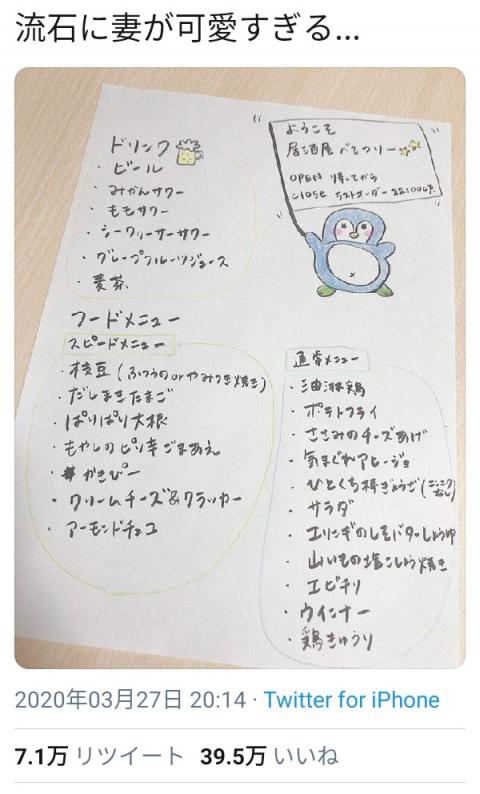 流石に妻が可愛すぎる...
ようこそ
居酒屋 べろつりー
OPEN 帰ってから
CLOSE ラストオーダー 22:00くらい
ドリンク
・ビール
・みかんサワー
・ももサワー
・シークヮーサーサワー
・グレープフルーツジュース
・麦茶
フードメニュー
スピードメニュー
・枝豆(ふつうのorやみつき焼き)
・だしまきたまご
・ぱりぱり大根
・もやしのピリ辛ごまあえ
・かきぴー
・クリームチーズ&クラッカー
・アーモンドチョコ
通常メニュー
・油淋鶏
・ポテトフライ
・ささみのチーズあげ
・気まぐれアヒージョ
・ひとくち棒ぎょうざ(にんにくなし)
・サラダ
・エリンギのしそバターしょうゆ
・山いもの塩こしょう焼き
・エビチリ
・ウインナー
・鶏きゅうり
2020年03月27日 20:14 · Twitter for iPhone
7.1万 リツイート 39.5万 いいね